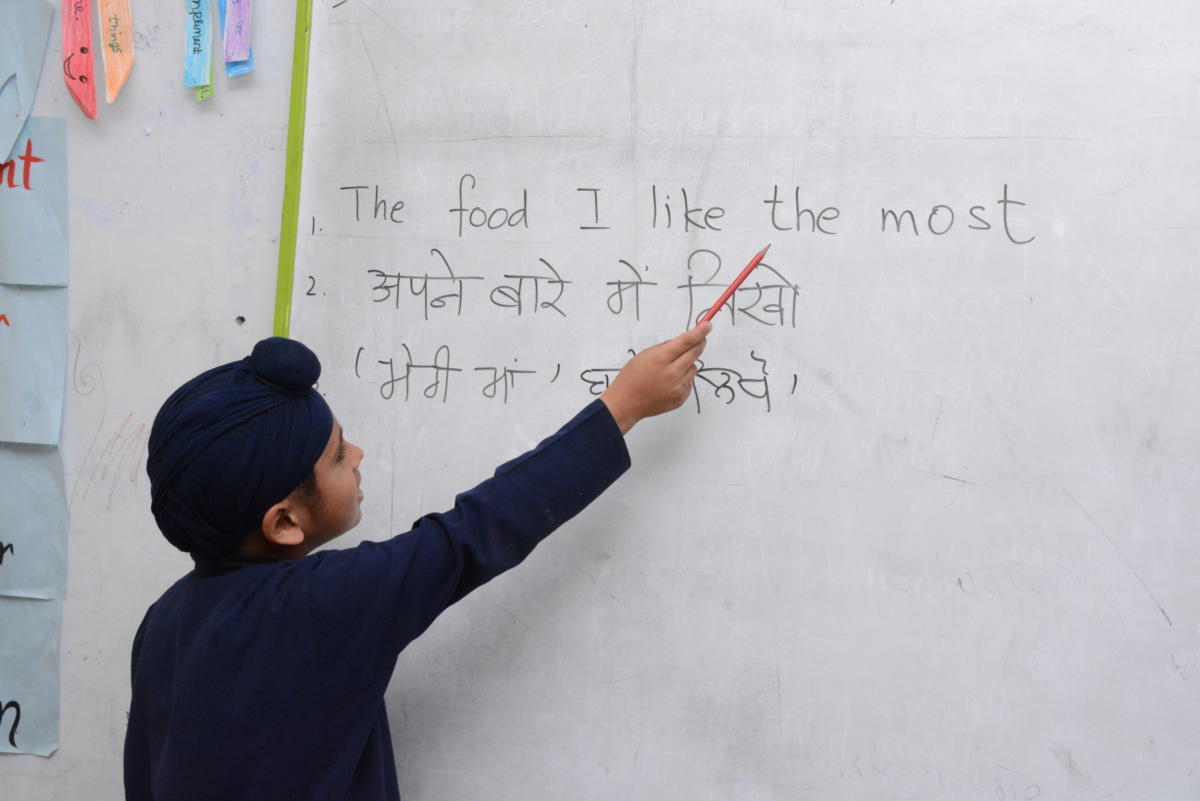 things
1. The food I like the most
2. अपने बारे में लिखो
'ਮੇਰੀ ਮਾਂ'